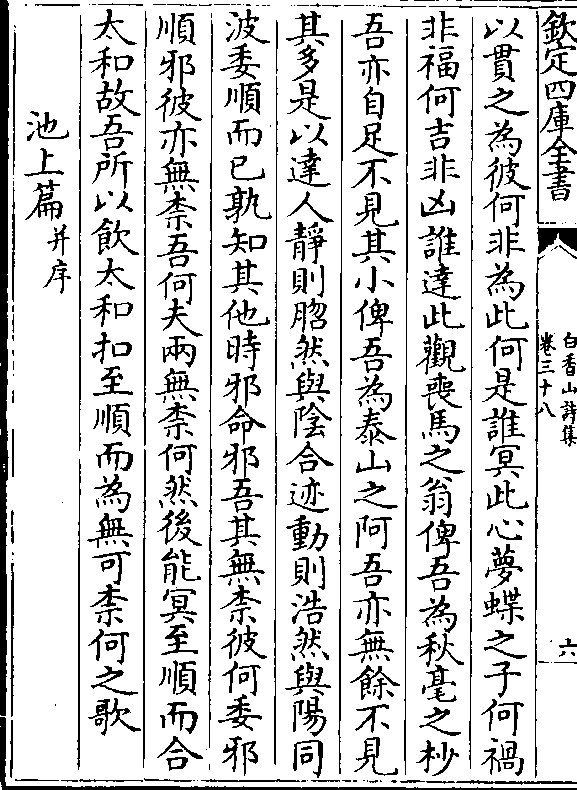 欽定四庫全書
白香山詩集
卷三十八
六
以貫之為彼何非為此何是誰冥此心夢蝶之子何禍
非福何吉非凶誰達此觀喪馬之翁俾吾為秋毫之杪
吾亦自足不見其小俾吾為泰山之阿吾亦無餘不見
其多是以達人靜則脗然與陰合迹動則浩然與陽同
波委順而已孰知其他時邪命邪吾其無柰彼何委邪
順邪彼亦無柰吾何夫兩無柰何然後能冥至順而合
太和故吾所以飲太和扣至順而為無可柰何之歌
池上篇并序